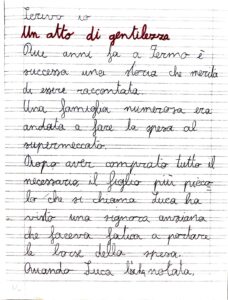 Scrivo io
Un atto di gentilezza
Due anni fa a Fermo è
successa una storia che merita
di essere raccontata.
Una famiglia numerosa era
andata a fare la spesa al
supermeccato.
Dopo aver comprato tutto il
necessario il figlio più picco
lo che si chiama Luca ha
visto una signora anziana
che faceva fatica a portare
le borse della spesa.
Quando Luca l'ha notata,